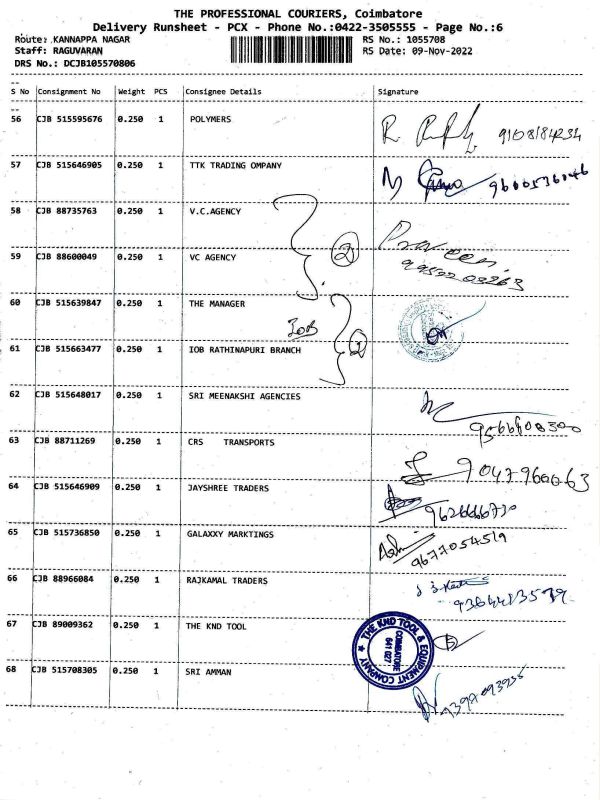 THE PROFESSIONAL COURIERS, Coimbatore
Delivery Runsheet - PCX - Phone No.:0422-3505555 - Page No.:6
Route: KANNAPPA NAGAR RS No.: 1055708
Staff: RAGUVARAN RS Date: 09-Nov-2022
DRS No.: DCJB105570806
S No Consignment No Weight PCS Consignee Details Signature
56 CJB 515595676 0.250 1 POLYMERS
9108184234
57 CJB 515646905 0.250 1 TTK TRADING OMPANY
9600536046
58 CJB 88735763 0.250 1 V.C.AGENCY
2 Praveen
59 CJB 88600049 0.250 1 VC AGENCY
60 CJB 515639847 0.250 1 THE MANAGER
IOB
61 CJB 515663477 0.250 1 IOB RATHINAPURI BRANCH 2
62 CJB 515648017 0.250 1 SRI MEENAKSHI AGENCIES
63 CJB 88711269 0.250 1 CRS TRANSPORTS
9047960063
64 CJB 515646909 0.250 1 JAYSHREE TRADERS
9626660730
65 CJB 515736850 0.250 1 GALAXXY MARKTINGS
9677054519
66 CJB 88966084 0.250 1 RAJKAMAL TRADERS
67 CJB 89009362 0.250 1 THE KND TOOL
THE KND TOOL & EQUIPMENT COMPANY
COIMBATORE
641 027
68 CJB 515708305 0.250 1 SRI AMMAN